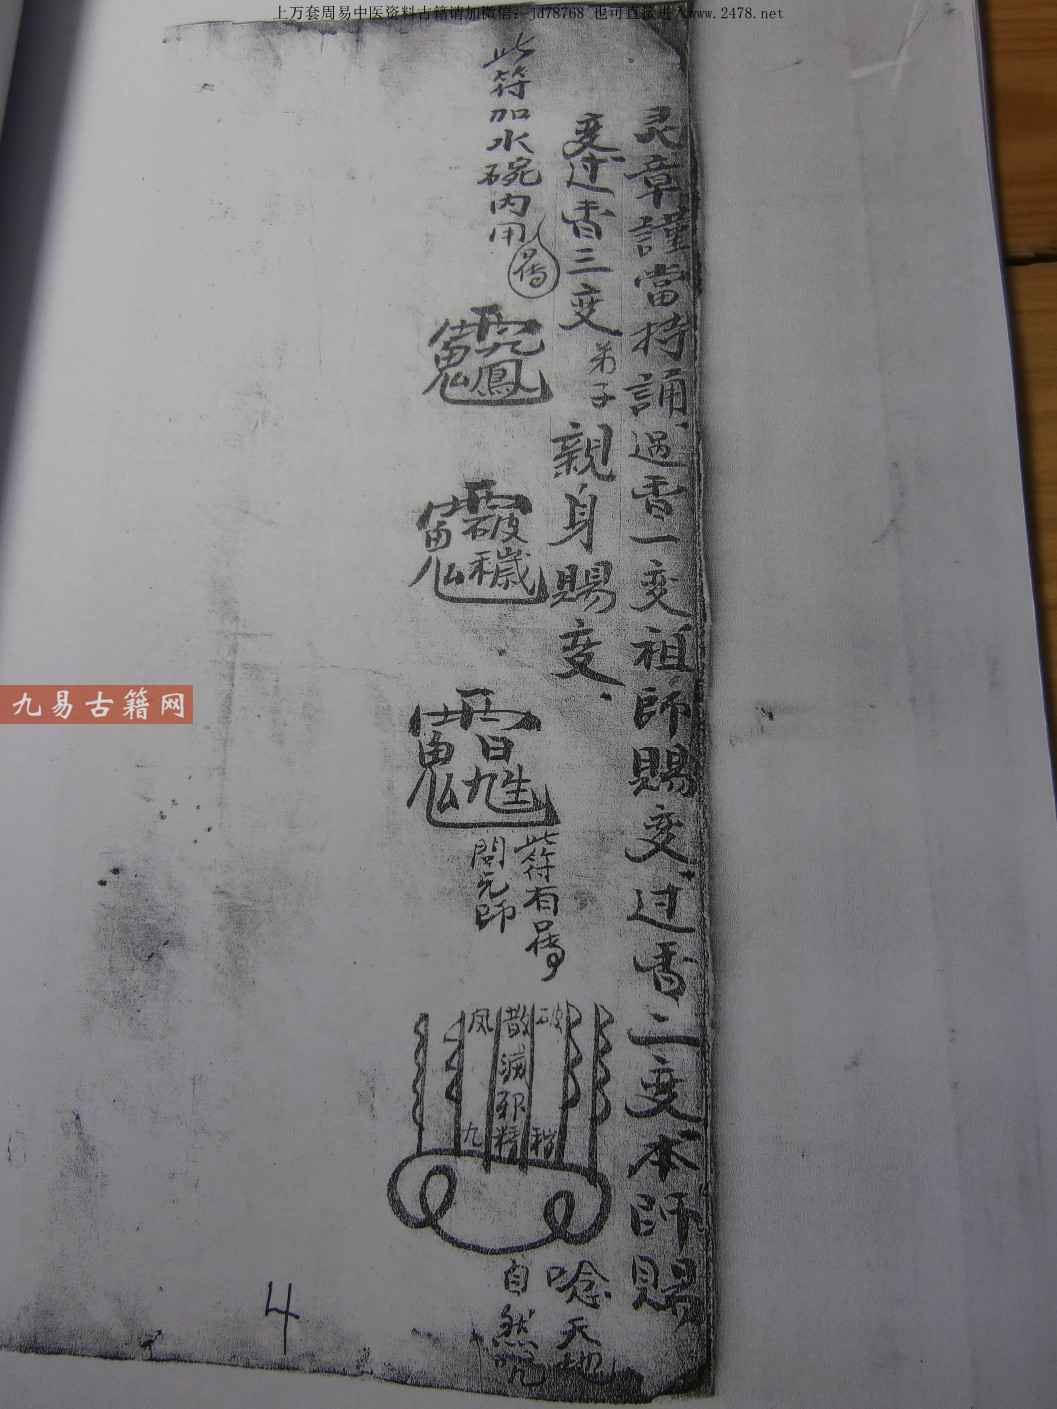 上万套周易中医资料古籍请加微信：jd78768 也可直接进入www.2478.net
灵章謹當持誦过香一变祖師賜变过香二变本師賜
变过香三变弟子親身賜变
此符加水碗内用
九鳳
破穢
日九生
此符有
問元帅
破穢
散滅邪精
九凤
唸天地
自然咒
九易古籍网
4